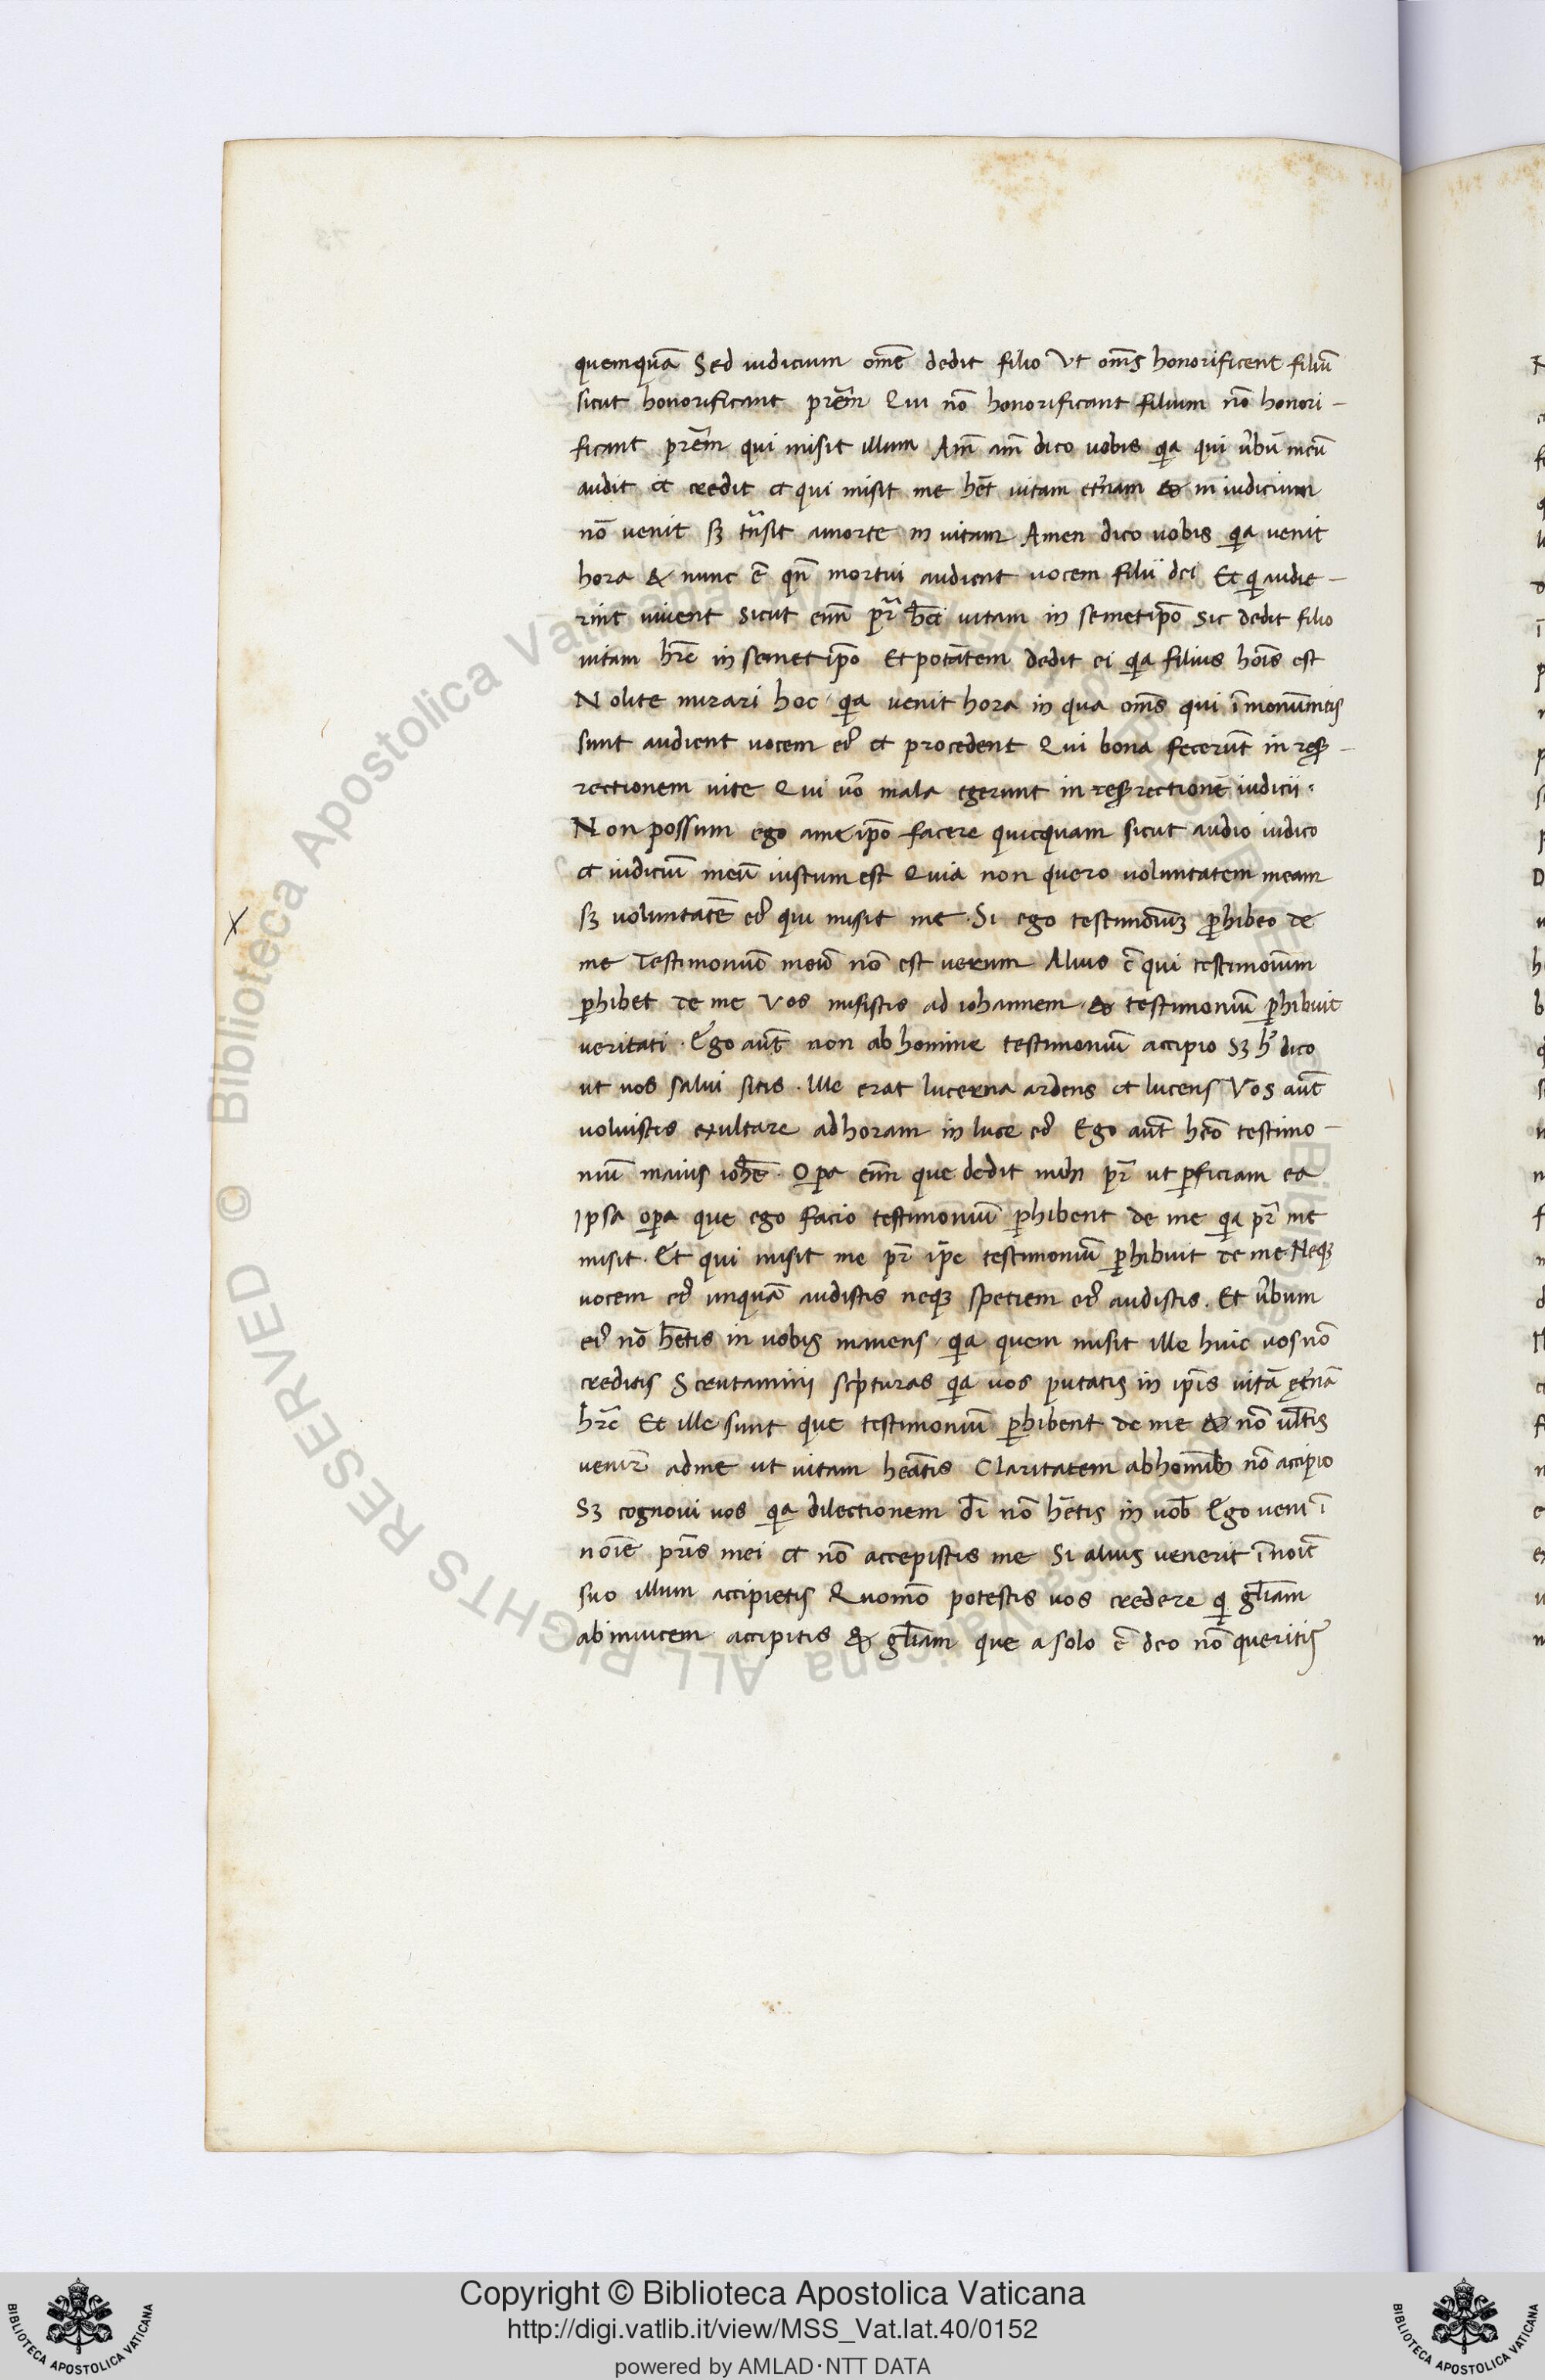 quemquā Sed iudicium om̄e dedit filio Vt om̄s honorificent filiū
sicut honorificant pr̄em Qui nō honorificant filium nō honori-
ficant pr̄em qui misit illum Am̄ am̄ dico uobis qa qui u̓bū meū
audit et credit et qui misit me het̄ uitam et̓nam & in iudicium
nō uenit sꝫ tn̄sit amorte in uitam Amen dico uobis qa uenit
hora & nunc ē qn̄ mortui audient uocem filii dei Et qi audie-
rint uiuent Sicut enī pr̄ h̄et uitam in semetip̄o Sic dedit filio
uitam hr̄e in semetip̄o Et potātem dedit ei qa filius hoīs est
Nolite mirari hoc. qa uenit hora in qua om̄s qui ī monumn̄tis
sunt audient uocem ei᾿ et procedent Qui bona fecerūt in resur-
rectionem uite Qui uō mala egerunt in resurrectionē iudicii.
Non possum ego ame ip̄o facere quicquam sicut audio iudico
et iudiciū meū iustum est Quia non quero uoluntatem meam
sꝫ uoluntatē ei᾿ qui misit me. Si ego testimoniuꝫ ꝑhibeo de
me Testimoniū meū nō est uerum Alius ē qui testimoīum
ꝑhibet de me Vos misistis ad iohannem & testimoniū ꝑhibuit
ueritati. Ego aūt non ab homine testimoniū accipio Sꝫ h̓ dico
ut uos salui sitis. Ille erat lucerna ardens et lucens Vos aūt
uoluistis exultare adhoram in luce ei᾿ Ego aūt heō testimo-
niū maius ioh̄e. Oꝑa enī que dedit mihi pr̄ ut ꝑficiam ea
Ipsa oꝑa que ego facio testimoniū ꝑhibent de me qa pr̄ me
misit. Et qui misit me pr̄ ip̄e testimoniū ꝑhibuit de me Neqꝫ
uocem ei᾿ unquā audistis neqꝫ spetiem ei᾿ audistis. Et u̓bum
ei᾿ nō hētis in uobis manens. qa quem misit ille huic uos nō
creditis Scrutamini scpturas qa uos putatis in ip̄is uitā ęt̓nā
hr̄e Et ille sunt que testimoniū ꝑhibent de me & nō ult̄is
uenir̄ adme ut uitam heātis Claritatem abhominib᾿ nō accipio
Sꝫ cognoui uos qa dilectionem dī nō hētis in uob̄ Ego ueni ī
noīe pr̄is mei et nō accepistis me Si alius uenerit ī noīe
suo illum accipietis Quomō potestis uos credere qi gl̄iam
abinuicem accipitis & gl̄iam que a solo ē deo nō queritis
X
Copyright © Biblioteca Apostolica Vaticana
http://digi.vatlib.it/view/MSS_Vat.lat.40/0152
powered by AMLAD·NTT DATA
BIBLIOTECA APOSTOLICA VATICANA
BIBLIOTECA APOSTOLICA VATICANA